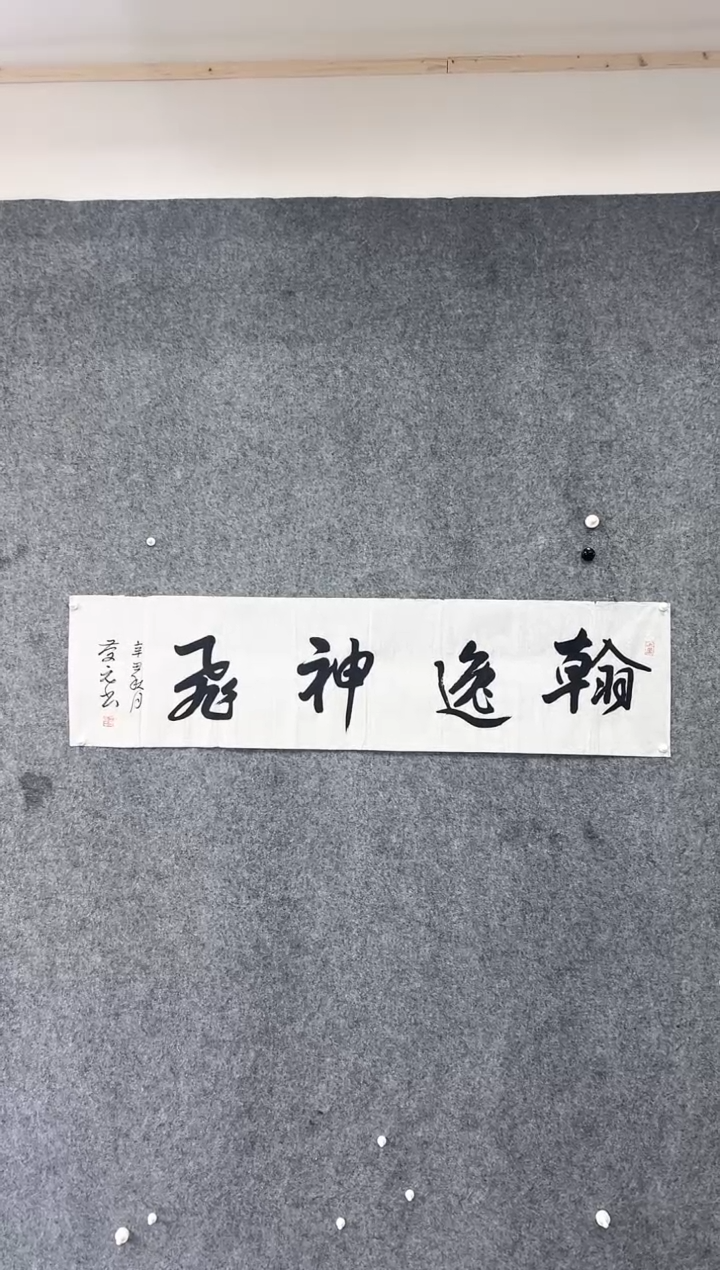 翰逸神飛
辛丑秋月
元书